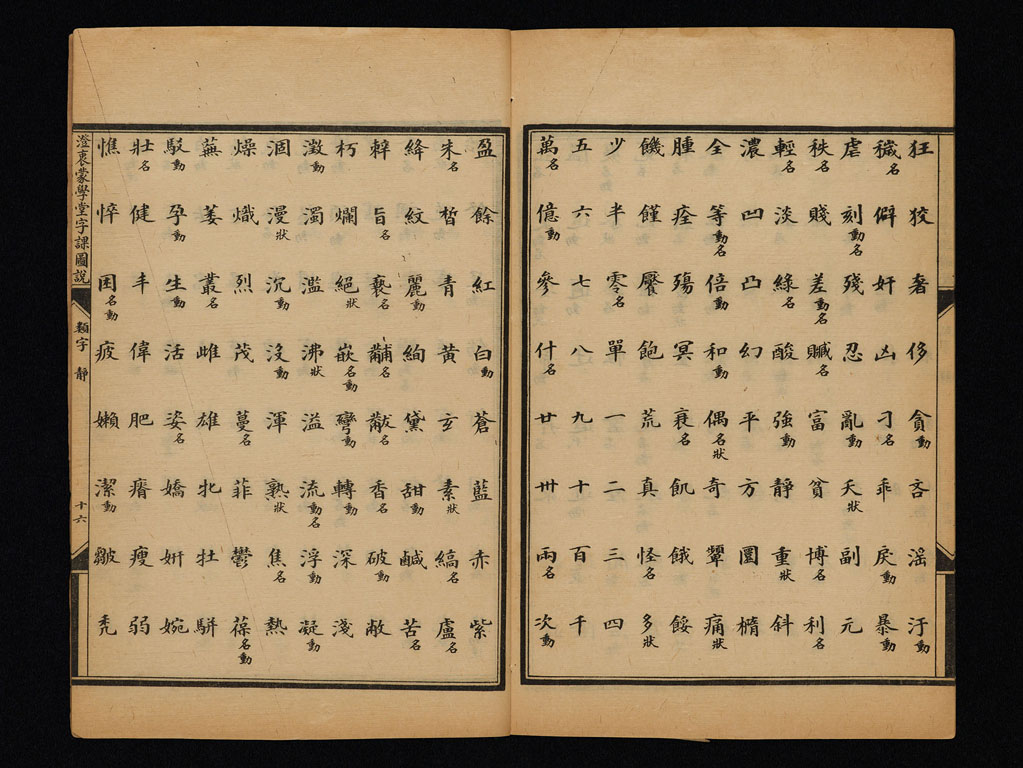 狂狡奢侈貪動吝淫汙動
穢名僻奸凶刁名乖戾動暴動
虐刻動名殘忍亂動夭狀副元
秩名賤差動名贓名富貧博名利名
輕名淡綠名酸強動靜重狀斜
濃凹凸幻平方圓橢
全等動名倍動和動偶名狀奇痛狀
腫痊殤動冥衰名飢餓餒
饑饉饜飽荒真怪名多狀
少半零名單一二三四
五六七八九十百千
萬名億動參什名廿卅兩名次動
盈餘紅白動蒼藍赤紫
朱名皙青黃玄素狀縞名盧名
絳紋麗動絢黛甜動鹹苦名
辢旨名褻名黼名黻名香名破動敝
朽爛絕狀嵌名動彎動轉動深淺
澂動濁濫沸狀溢流動名浮動凝動
涸漫狀沉動沒動渾熟狀焦名熱
燥熾烈茂蔓名菲鬱葆名動
蕪萎叢名雌雄牝牡駢
駁動孕動生動活姿名嬌妍婉
壯名健丰偉肥瘠瘦弱
憔悴困名動疲嬾潔動皺禿
澄衷蒙學堂字課圖說 類字 靜 十六